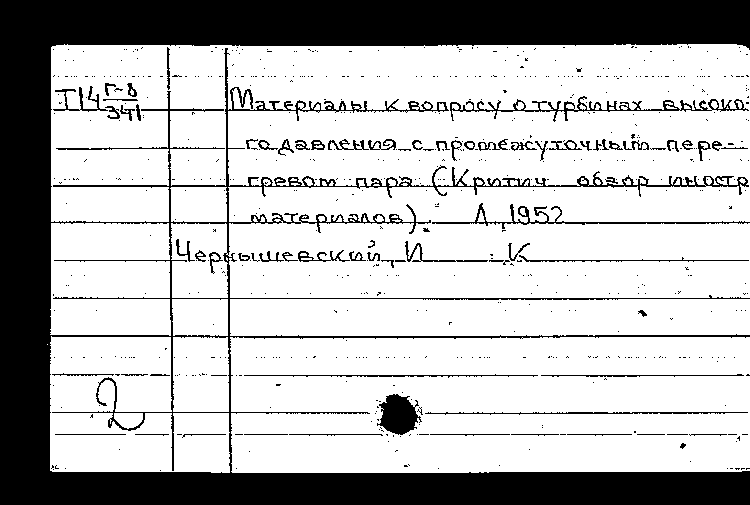 Т14 Г-8/341 Материалы к вопросу о турбинах высоко-
го давления с промежуточным пере-
гревом пара (Критич обзор иностр
материалов). Л, 1952
Чернышевский, И К
2